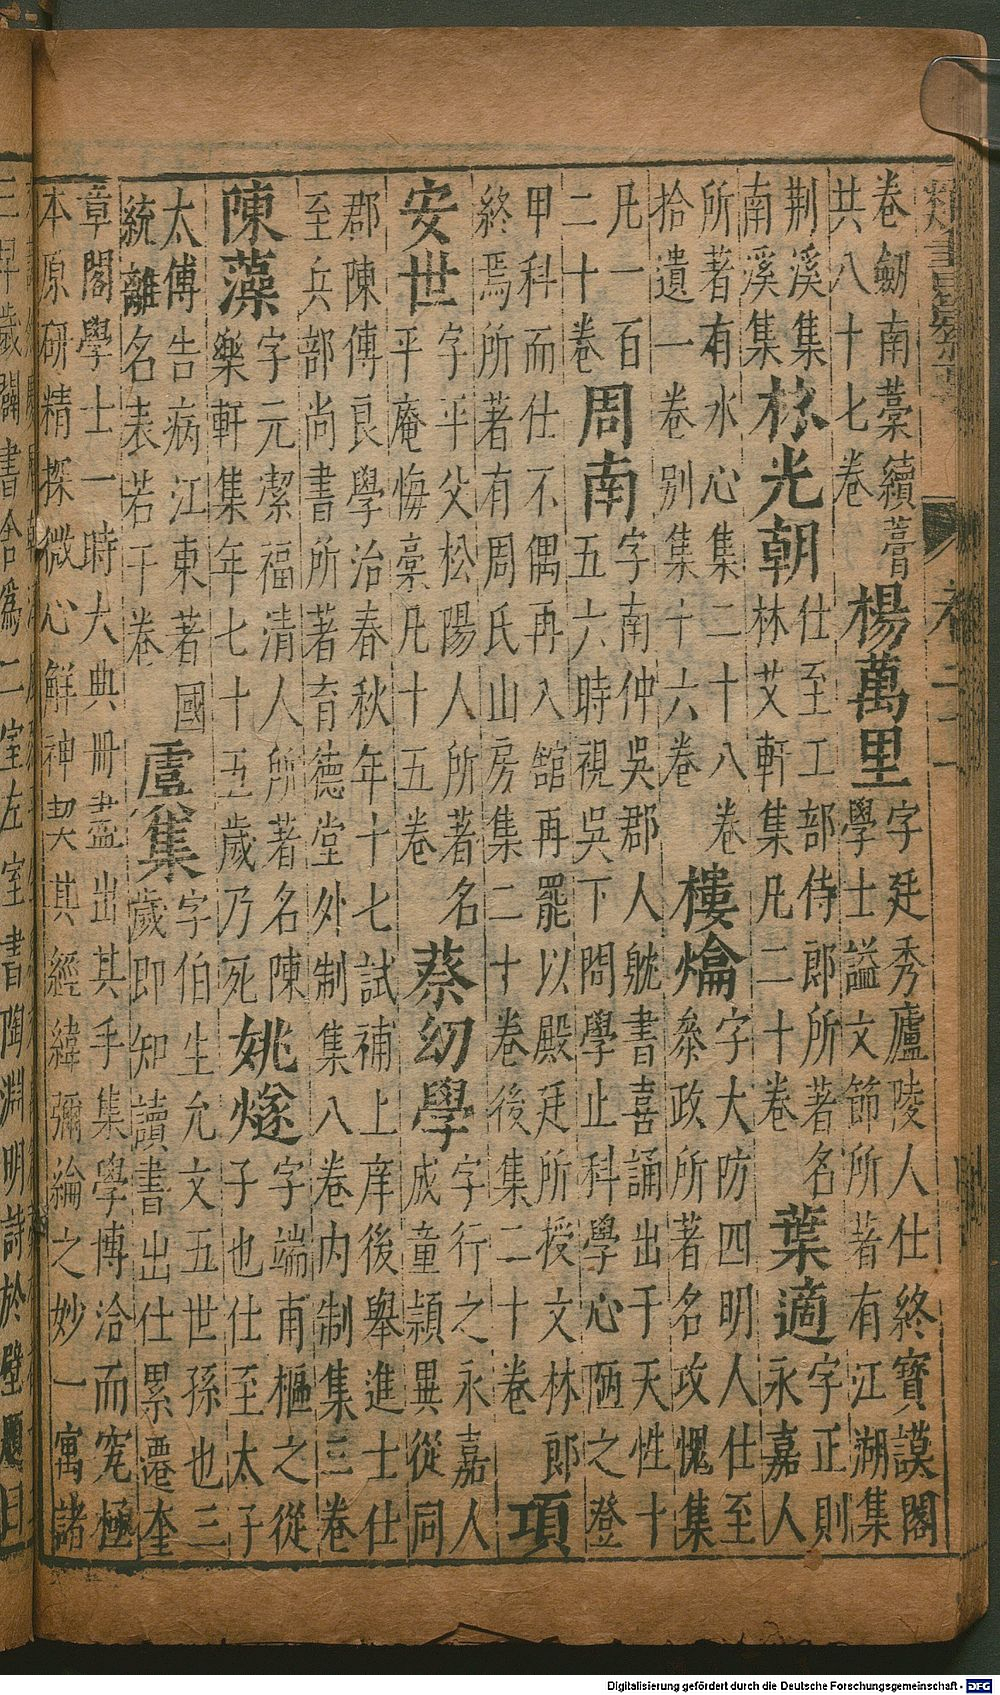 卷劒南藁續藁共八十七卷楊萬里字廷秀廬陵人仕終寶謨閣學士謚文節所著有江湖集
荆溪集南溪集林光朝仕至工部侍郎所著名林艾軒集凡二十卷葉適字正則永嘉人
所著有水心集二十八卷拾遺一卷别集十六卷樓爚字大防四明人仕至叅政所著名攻愧集
凡一百二十卷周南字南仲吳郡人躭書喜誦出于天性十五六時視吳下問學止科學心陋之登
甲科而仕不偶再入舘再罷以殿廷所授文林郎終焉所著有周氏山房集二十卷後集二十卷項
安世字平父松陽人所著名平庵悔藁凡十五卷蔡幼學字行之永嘉人成童頴異從同
郡陳傅良學治春秋年十七試補上庠後舉進士仕至兵部尚書所著育德堂外制集八卷内制集三卷
陳藻字元潔福清人所著名陳樂軒集年七十五歲乃死姚燧字端甫樞之從子也仕至太子
太傅告病江東著國統離名表若干卷虞集字伯生允文五世孫也三歲即知讀書出仕累遷奎
章閣學士一時大典冊盡出其手集學博洽而究極本原研精探微心解神契其經緯彌綸之妙一寓諸
早歲闢書舍爲二室左室書陶淵明詩於壁題曰
Digitalisierung gefördert durch die Deutsche Forschungsgemeinschaft - DFG